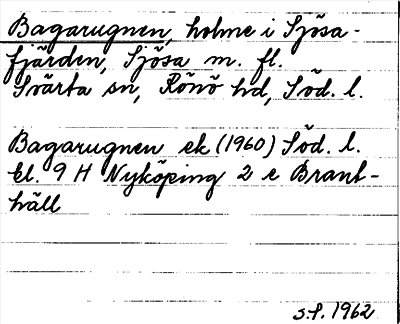 Bagarugnen, holme i Sjösa-
fjärden, Sjösa m. fl.
Svärta sn, Rönö hd, Söd. l.
Bagarugnen ek (1960) Söd. l.
bl. 9 H Nyköping 2 e Brant-
häll
S.P. 1962